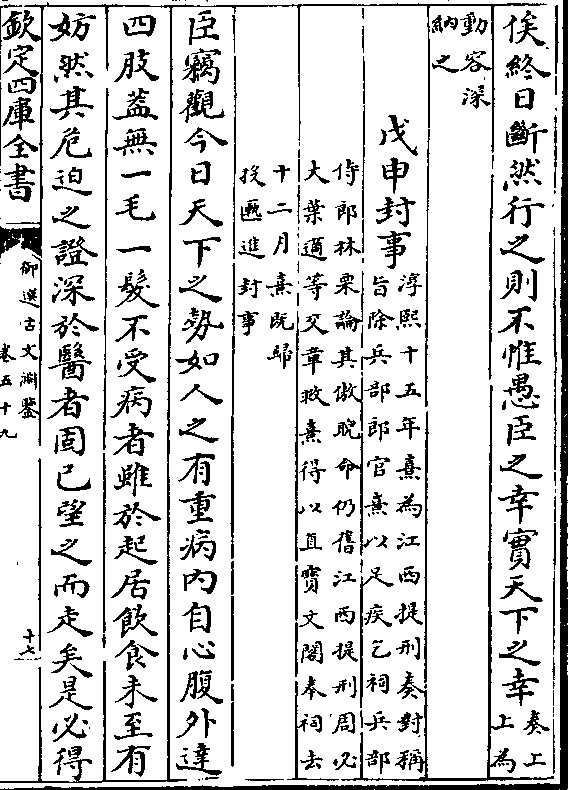 俟終日斷然行之則不惟愚臣之幸實天下之幸
奏上
上為
動容深
納之
戊申封事
淳熙十五年熹為江西提刑奏對稱
旨除兵部郎官熹以足疾乞祠兵部
侍郎林栗論其傲睨命仍舊江西提刑周必
大葉適等交章救熹得以直寳文閣奉祠去
十二月熹既歸
投匭進封事
臣竊觀今日天下之勢如人之有重病内自心腹外達
四肢葢無一毛一髮不受病者雖於起居飲食未至有
妨然其危迫之證深於醫者固已望之而走矣是必得
欽定四庫全書
御選古文淵鑒
卷五十九
十七